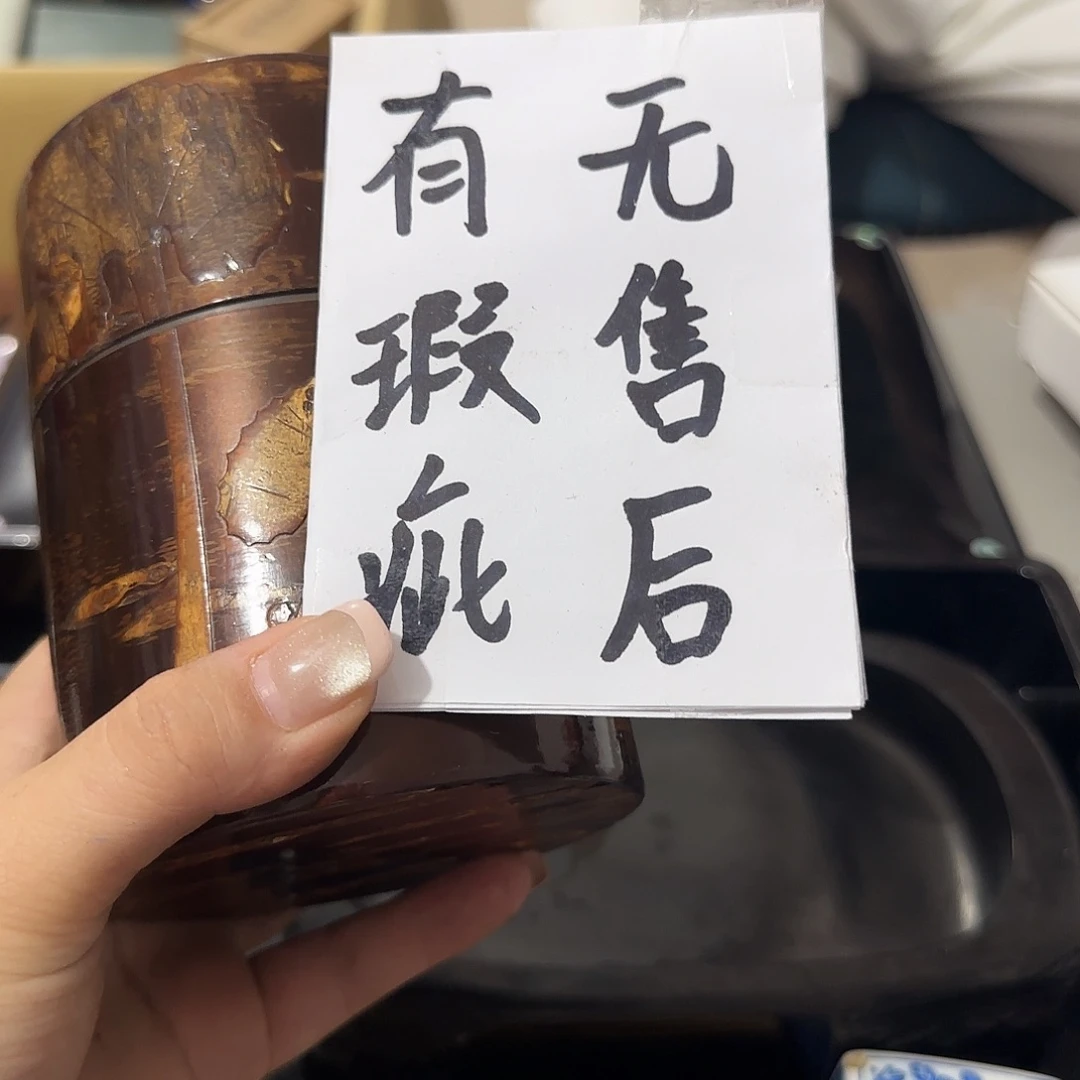 有瑕疵
无售后